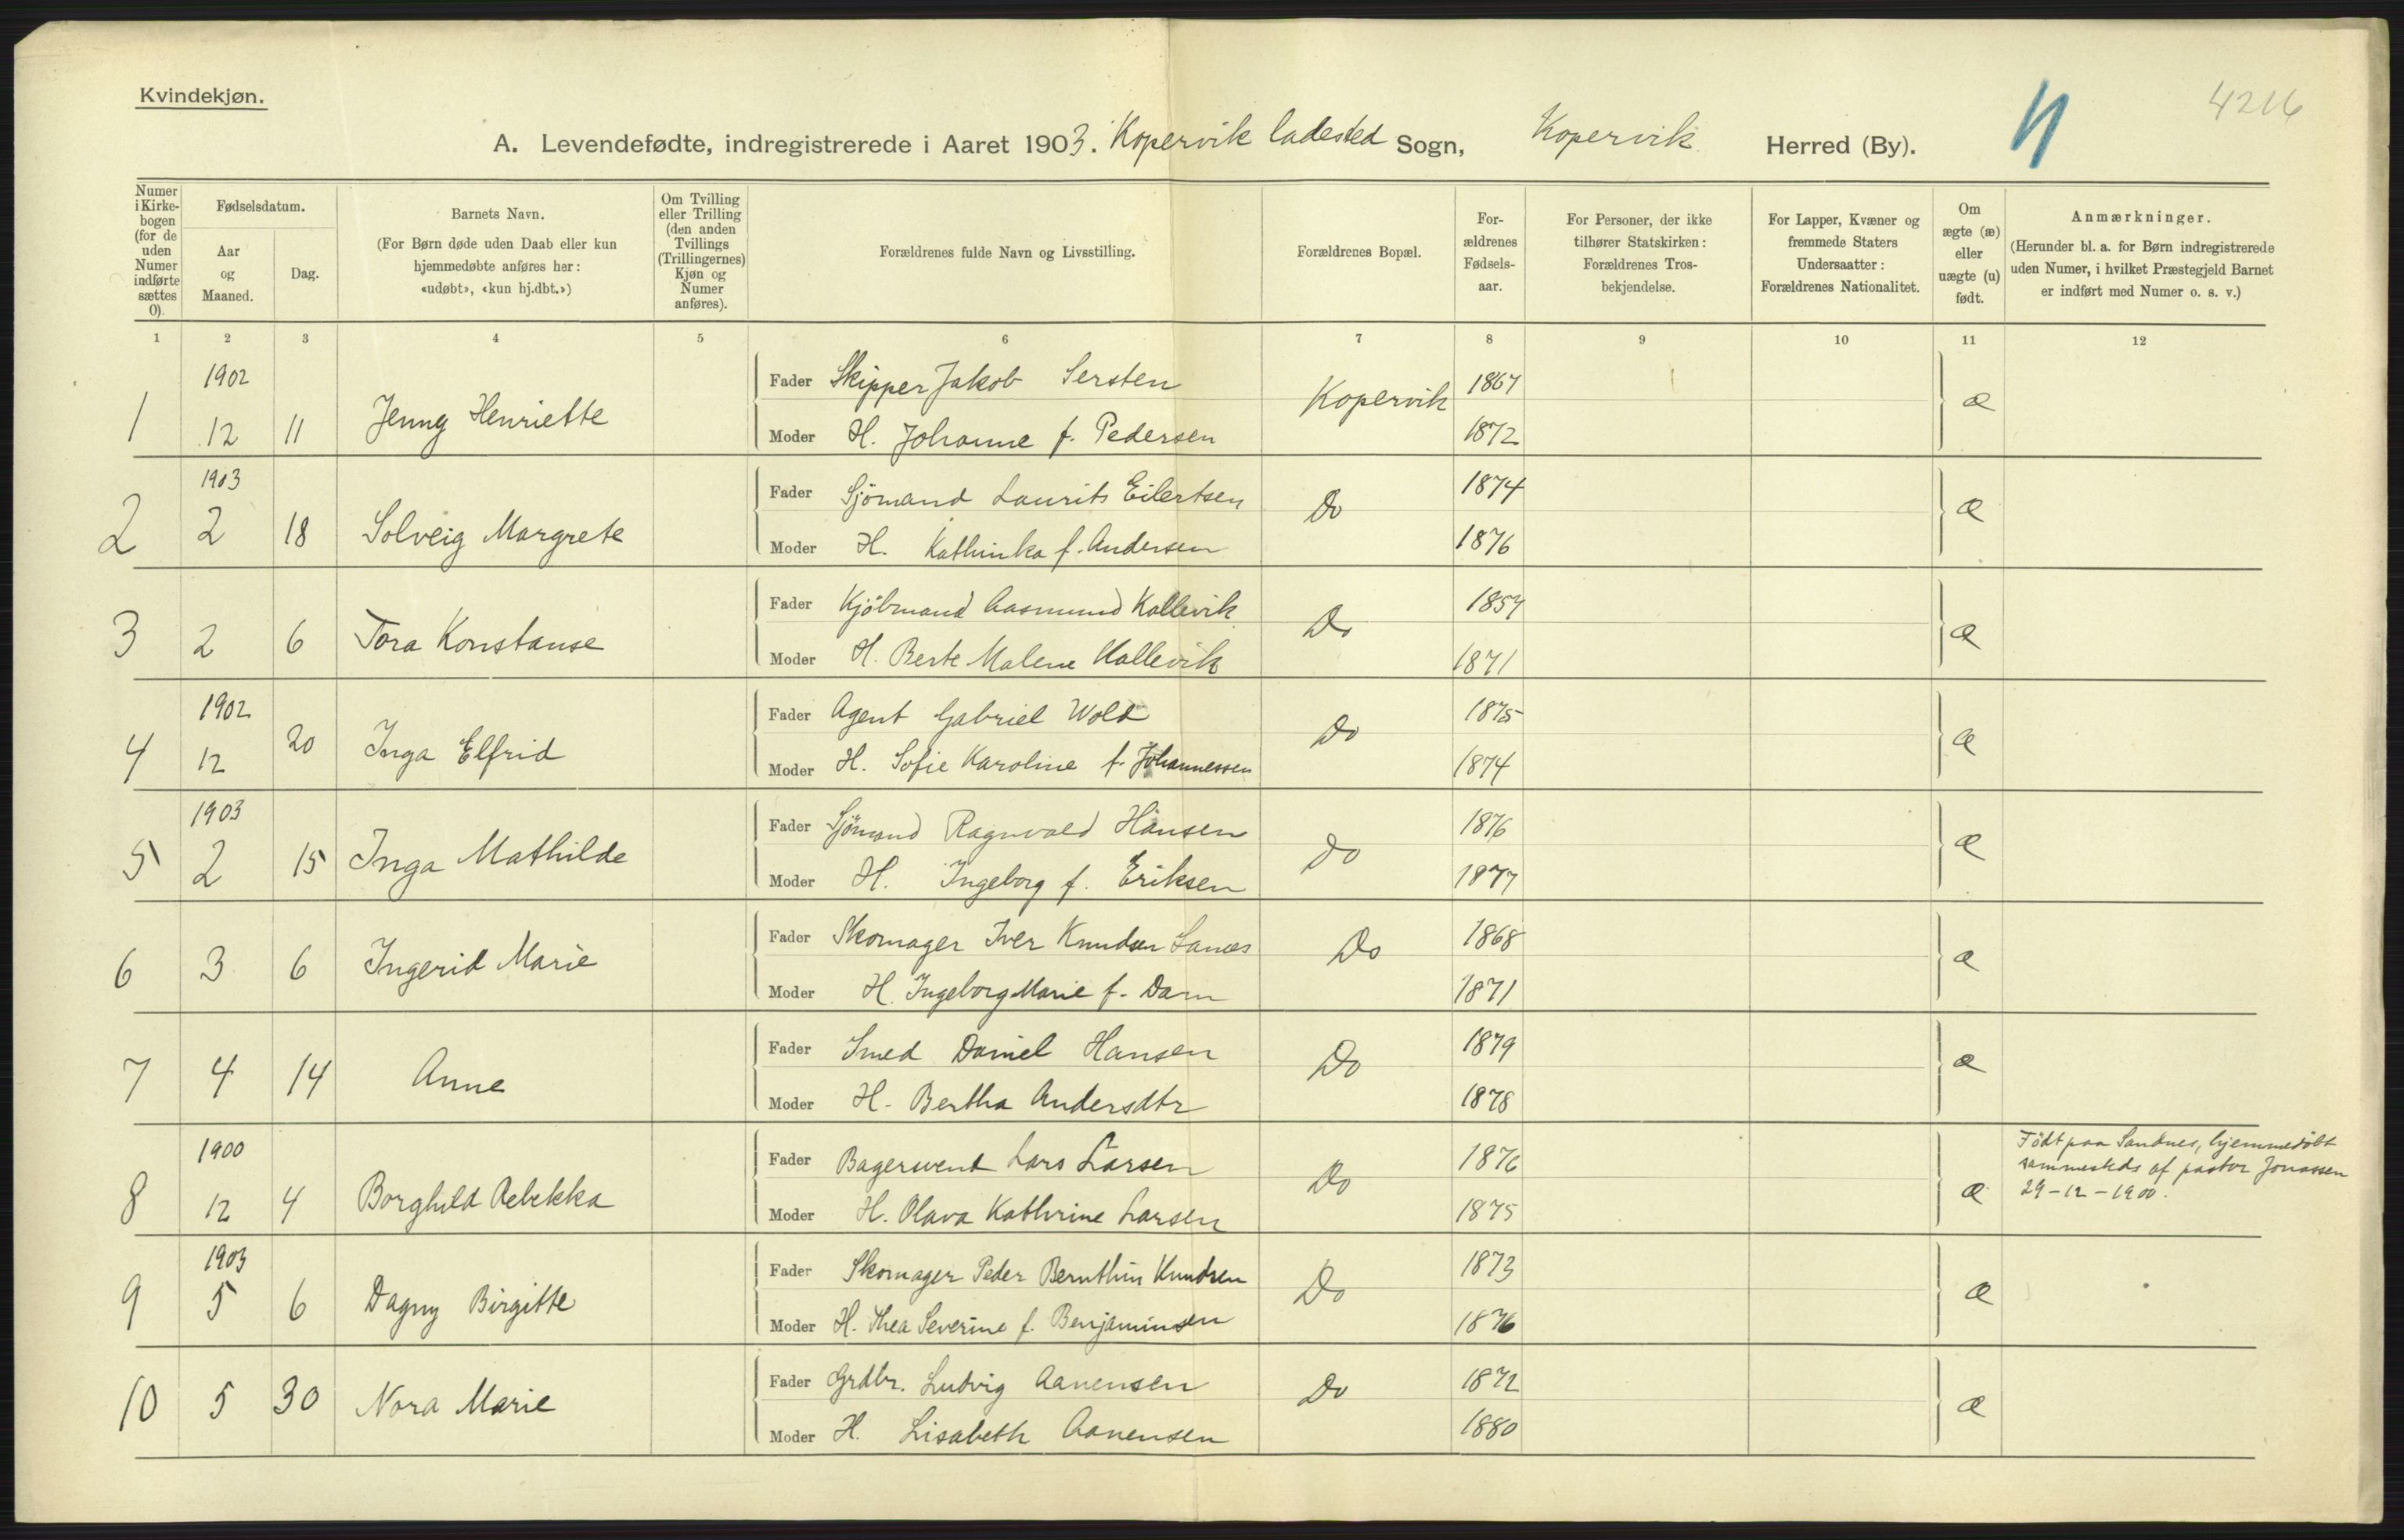 Kvindekjøn.
4216
A. Levendefødte, indregistrerede i Aaret 1903. Kopervik ladested Sogn, Kopervik Herred (By).
Numer i Kirkebogen (for de uden Numer indførte sættes 0).
Fødselsdatum.
Aar og Maaned.
Dag.
Barnets Navn.
(For Børn døde uden Daab eller kun hjemmedøbte anføres her: «udøbt», «kun hj.dbt.»)
Om Tvilling eller Trilling (den anden Tvillings (Trillingernes) Kjøn og Numer anføres).
Forældrenes fulde Navn og Livsstilling.
Forældrenes Bopæl.
Forældrenes Fødselsaar.
For Personer, der ikke tilhører Statskirken: Forældrenes Trosbekjendelse.
For Lapper, Kvæner og fremmede Staters Undersaatter: Forældrenes Nationalitet.
Om ægte (æ) eller uægte (u) født.
Anmærkninger.
(Herunder bl. a. for Børn indregistrerede uden Numer, i hvilket Præstegjeld Barnet er indført med Numer o. s. v.)
1 2 3 4 5 6 7 8 9 10 11 12
1902
1 12 11 Jenny Henriette
Fader Skipper Jakob Sersten Kopervik 1867 æ
Moder H. Johanne f. Pedersen 1872
1903
2 2 18 Solveig Margrete
Fader Sjömand Laurits Eilertsen Do 1874 æ
Moder H. Kathinka f. Andersen 1876
3 2 6 Tora Konstanse
Fader Kjöbmand Aasmund Kallevik Do 1857 æ
Moder H. Berte Malene Kallevik 1871
1902
4 12 20 Inga Elfrid
Fader Agent Gabriel Wold Do 1875 æ
Moder H. Sofie Karoline f. Johannessen 1874
1903
5 2 15 Inga Mathilde
Fader Sjömand Ragnvald Hansen Do 1876 æ
Moder H. Ingeborg f. Eriksen 1877
6 3 6 Ingerid Marie
Fader Skomager Iver Knudsen Do 1868 æ
Moder H. Ingeborg Marie f. Dam 1871
7 4 14 Anne
Fader Smed Daniel Hansen Do 1879 æ
Moder H. Bertha Andersdtr 1878
1900
8 12 4 Borghild Rebekka
Fader Bagersvend Lars Larsen Do 1876 æ
Moder H. Olava Kathrine Larsen 1875
Födt paa Sandnes, hjemmedöbt
sammesteds af pastor Jonassen
29-12-1900.
1903
9 5 6 Dagny Birgitte
Fader Skomager Peder Bernthin Knudsen Do 1873 æ
Moder H. Thea Severine f. Benjaminsen 1876
10 5 30 Nora Marie
Fader Grdbr. Ludvig Aanensen Do 1872 æ
Moder H. Lisabeth Aanensen 1880